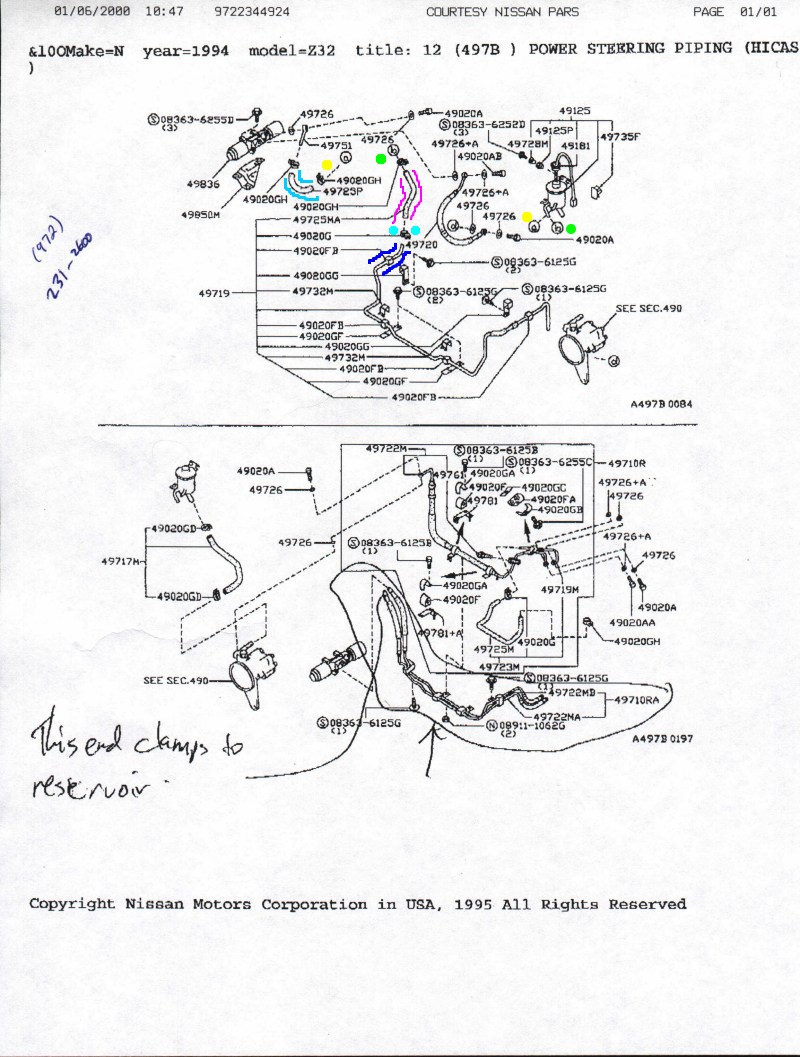 01/06/2000 10:47 9722344924 COURTESY NISSAN PARS PAGE 01/01
&l0OMake=N year=1994 model=Z32 title: 12 (497B ) POWER STEERING PIPING (HICAS
)
S08363-6255D
(3)
49726
49751
49836
49850M
49020GH
49020GH
49725P
49726
a
b
49020A
S08363-6252D
(3)
49726+A
49020AB
49726+A
49726
49726
49125
49125P
49728M
49181
49735F
49020A
a
b
d
d
(972)
231-2600
49020GH
49725MA
49020G
49020FB
49720
S08363-6125G
(2)
49020GG
49732M
S08363-6125G
(2)
S08363-6125G
(1)
49719
49020FB
49020GF
49020GG
49732M
49020FB
49020GF
49020FB
SEE SEC.490
A497B0084
49722M
S08363-6125B
(1)
S08363-6255C
(1)
49710R
49020A
49726
49761
49020GA
49020F
49020GC
49781
49020FA
49020GB
49726+A
49726
49020GD
49717M
49020GD
49726
S08363-6125B
(1)
49726+A
49726
49020GA
49020F
49719M
49020A
49020AA
49781+A
49020G
49020GH
49725M
49723M
SEE SEC.490
S08363-6125G
(1)
49722MB
49710RA
49722MA
S08363-6125G
(1)
N08911-1062G
(2)
A497B0197
This end clamps to
reservoir.
Copyright Nissan Motors Corporation in USA, 1995 All Rights Reserved